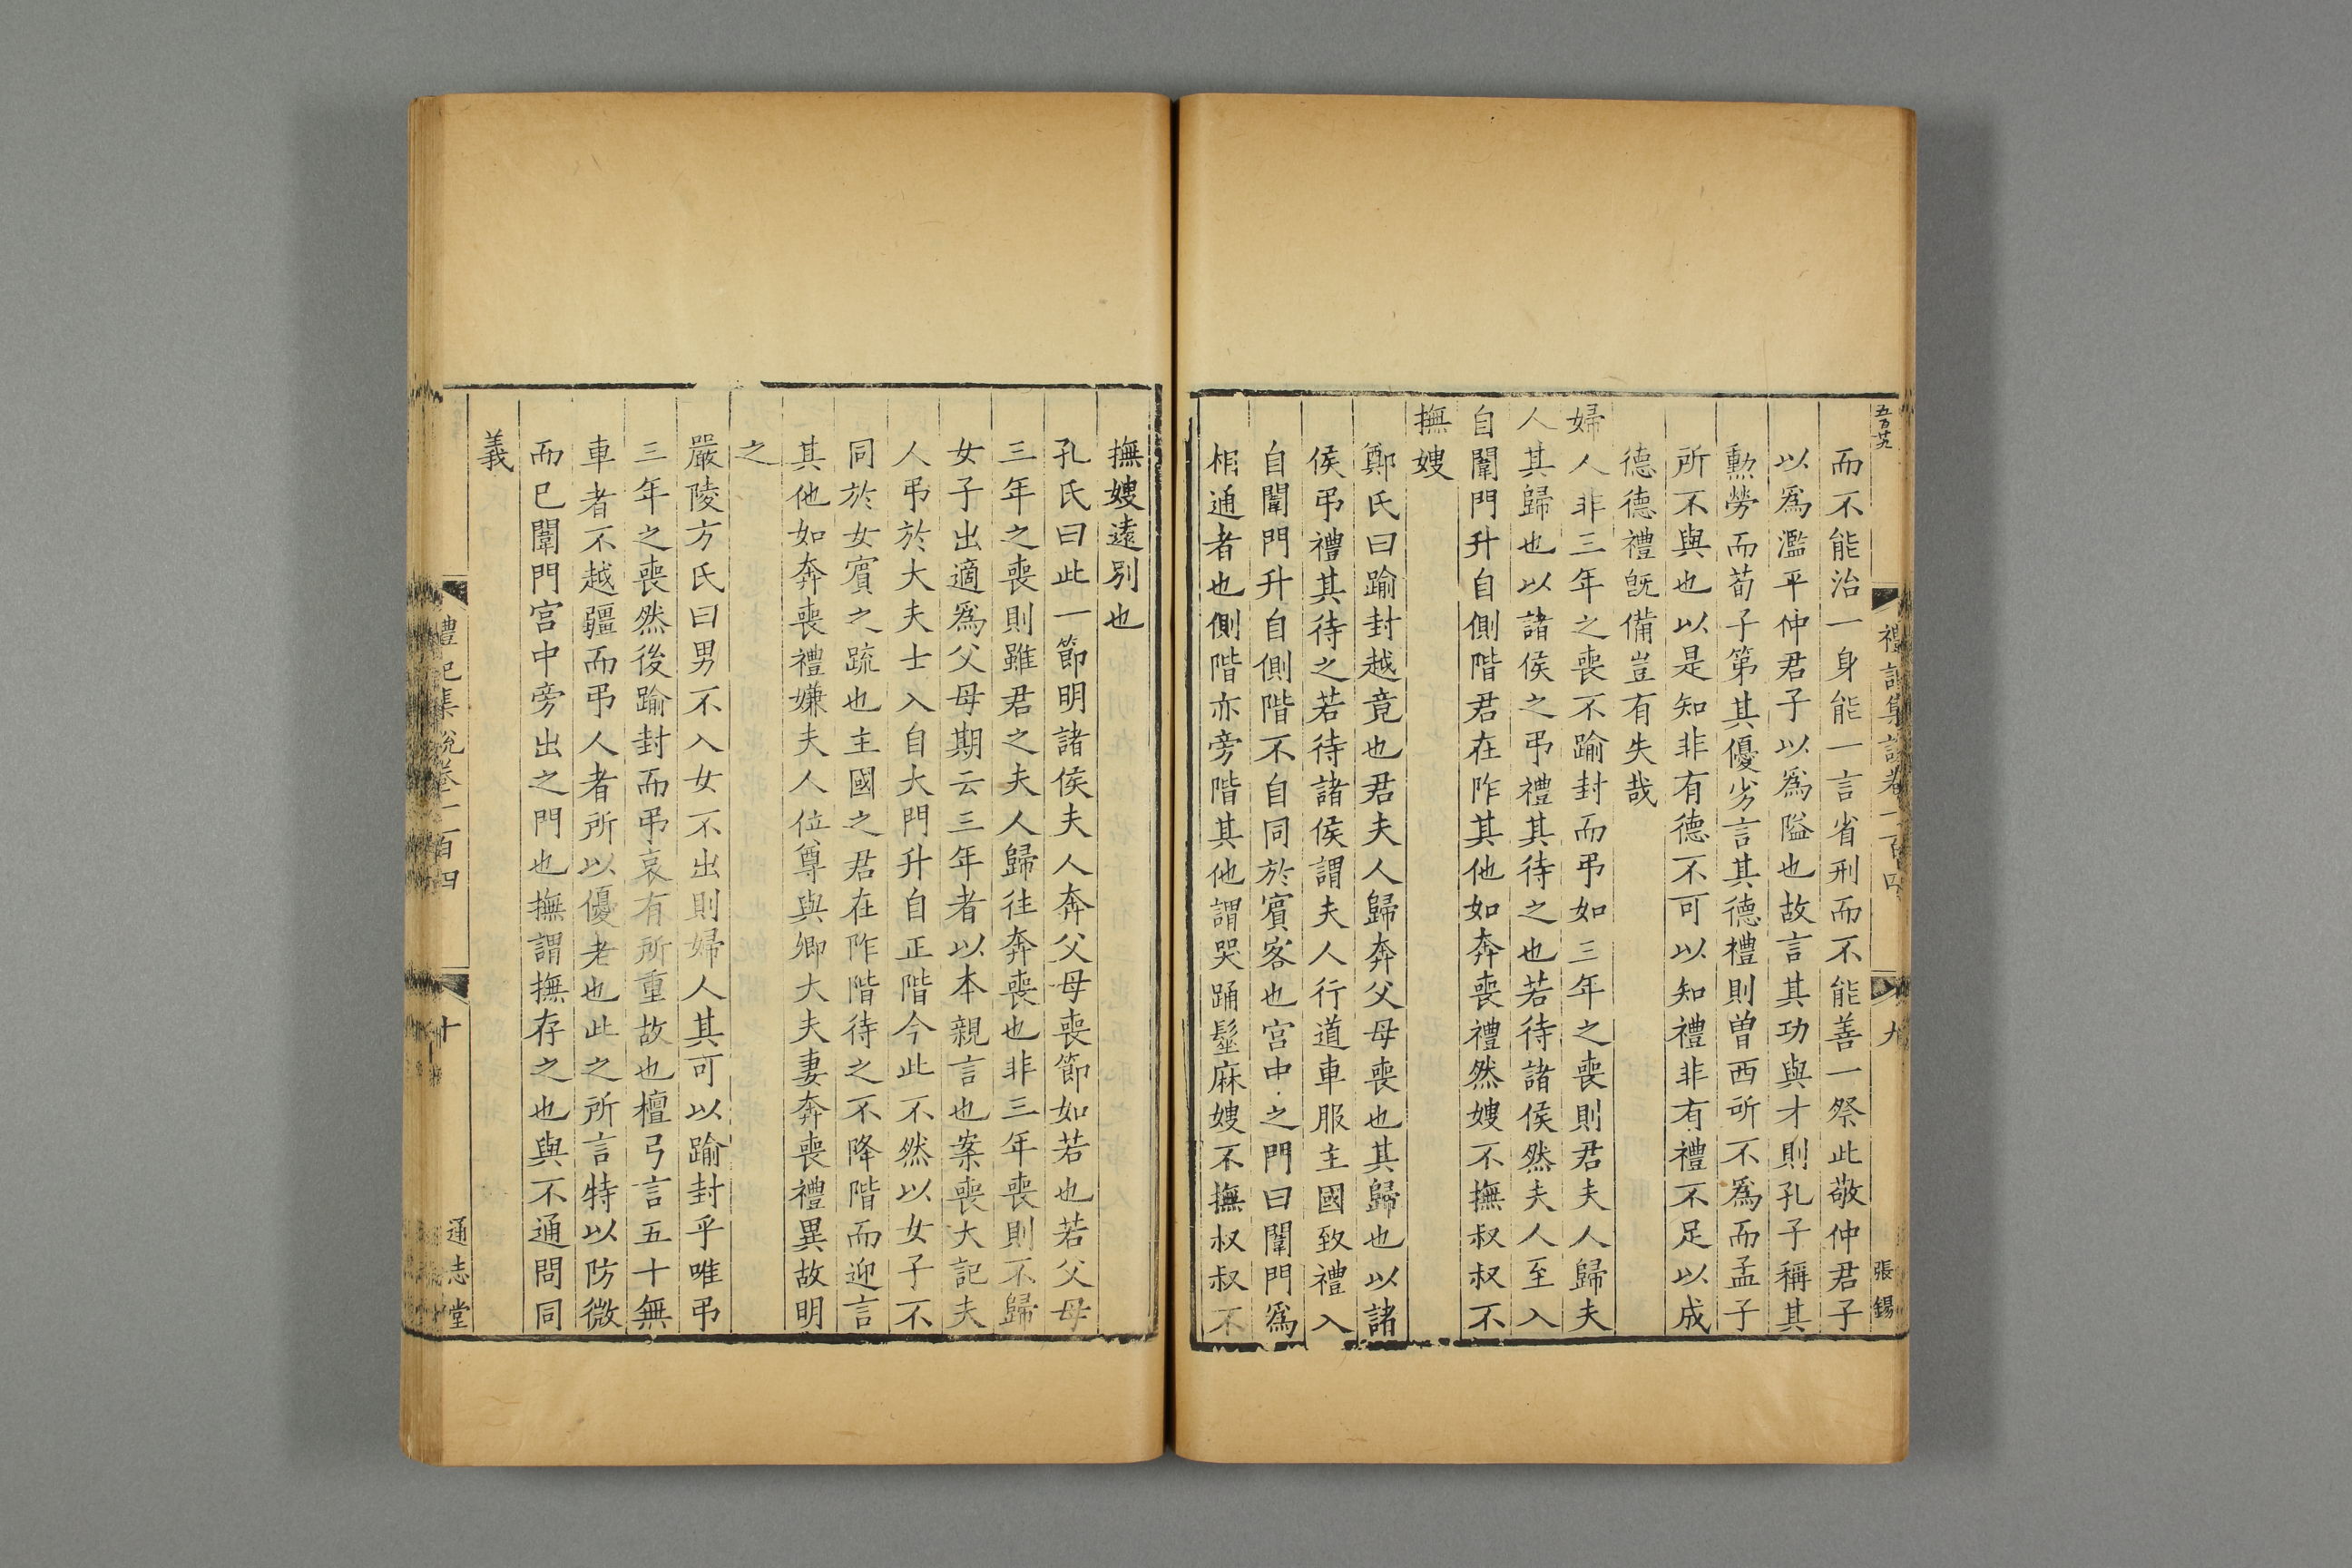 五百廿九
禮記集說卷一百四
九
張錫
而不能治一身能一言省刑而不能善一祭此敬仲君子
以爲濫平仲君子以爲隘也故言其功與才則孔子稱其
勲勞而荀子第其優劣言其德禮則曽西所不爲而孟子
所不與也以是知非有德不可以知禮非有禮不足以成
德德禮旣備豈有失哉
婦人非三年之喪不踰封而弔如三年之喪則君夫人歸夫
人其歸也以諸侯之弔禮其待之也若待諸侯然夫人至入
自闈門升自側階君在阼其他如奔喪禮然嫂不撫叔叔不
撫嫂
鄭氏曰踰封越竟也君夫人歸奔父母喪也其歸也以諸
侯弔禮其待之若待諸侯謂夫人行道車服主國致禮入
自闈門升自側階不自同於賓客也宫中之門曰闈門爲
相通者也側階亦旁階其他謂哭踊髽麻嫂不撫叔叔不
撫嫂遠别也
孔氏曰此一節明諸侯夫人奔父母喪節如若也若父母
三年之喪則雖君之夫人歸往奔喪也非三年喪則不歸
女子出適爲父母期云三年者以本親言也案喪大記夫
人弔於大夫士入自大門升自正階今此不然以女子不
同於女賓之疏也主國之君在阼階待之不降階而迎言
其他如奔喪禮嫌夫人位尊與卿大夫妻奔喪禮異故明
之
嚴陵方氏曰男不入女不出則婦人其可以踰封乎唯弔
三年之喪然後踰封而弔哀有所重故也檀弓言五十無
車者不越疆而弔人者所以優老也此之所言特以防微
而已闈門宫中旁出之門也撫謂撫存之也與不通問同
義
禮記集說卷一百四
十
通志堂